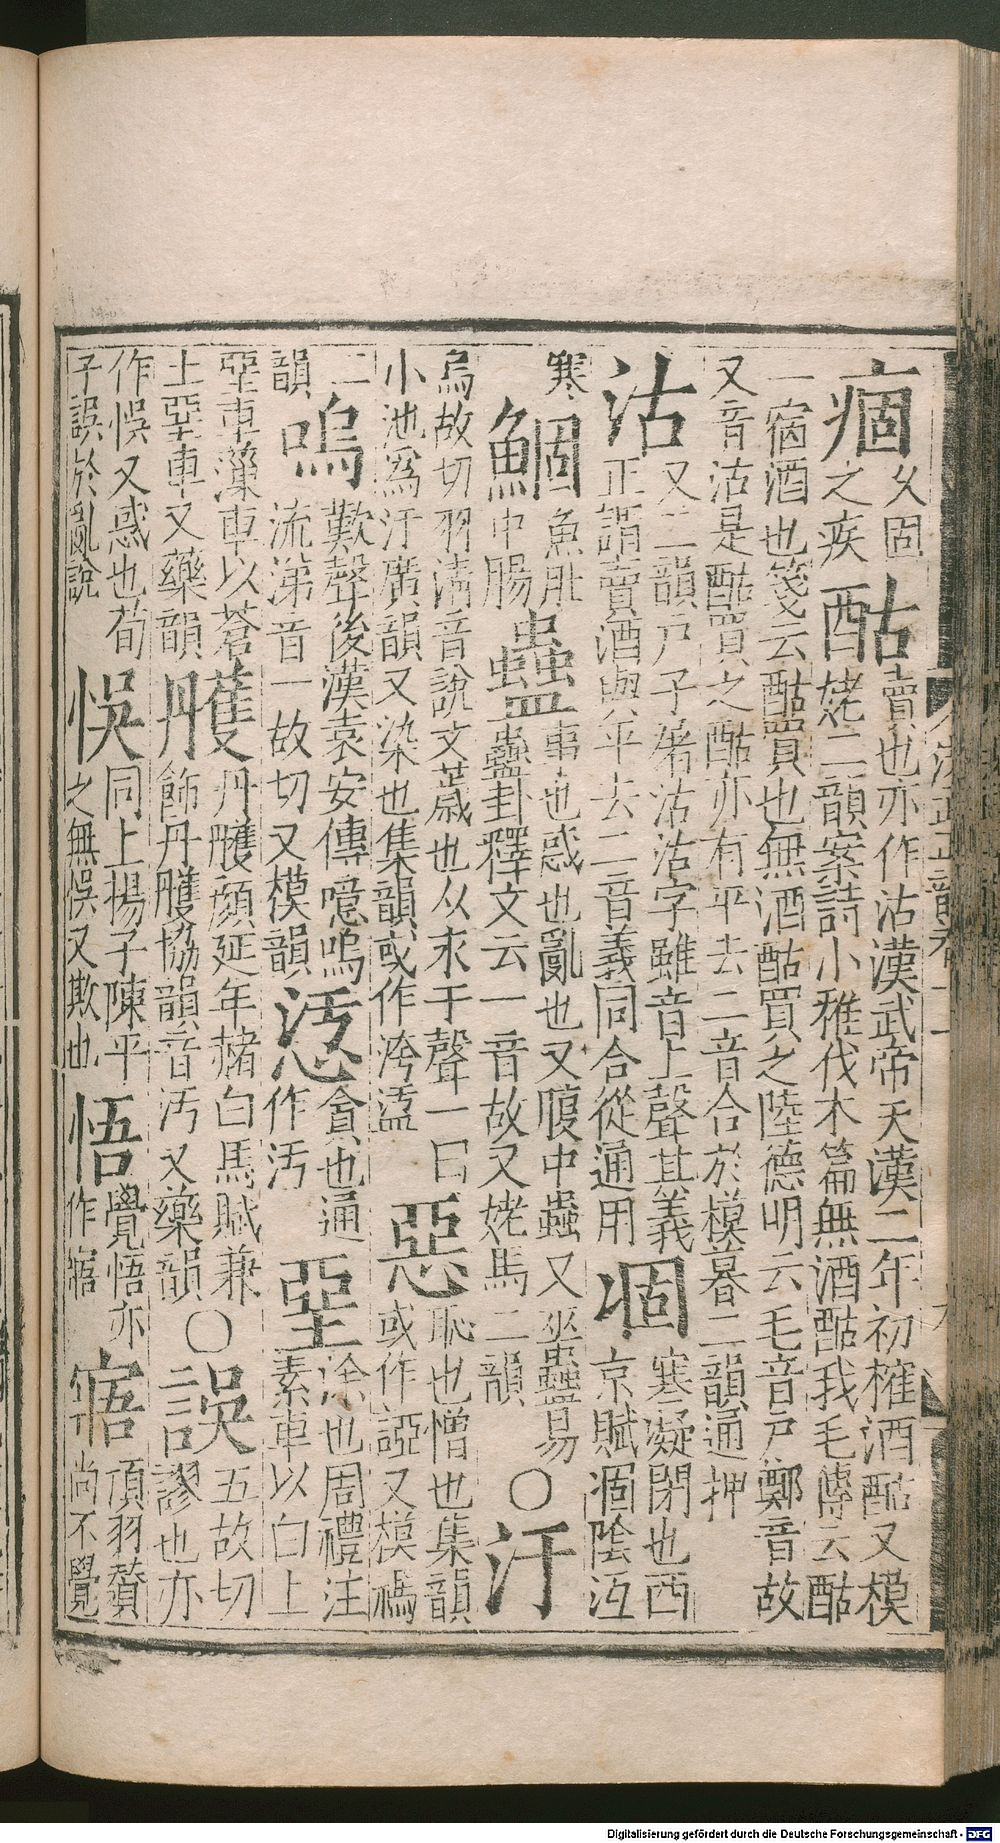 痼久固之疾酤賣也亦作沽漢武帝天漢二年初榷酒酤又模姥二韻案詩小雅伐木篇無酒酤我毛傳云酤
一宿酒也箋云酤買也無酒酤買之陸德明云毛音戶鄭音故又音沽是酤買之酤亦有平去二音合於模暮二韻通押
沽又二韻戶子屠沽沽字雖音上聲其義正謂賣酒與平去二音義同合從通用凅寒凝閉也西京賦凅陰沍
寒鯝魚肚中腸蠱事也惑也亂也又腹中蟲又巫蠱易蠱卦釋文云一音故又姥馬二韻○汙
烏故切羽溝音說文薉也从水于聲一曰小池為汙廣韻又染也集韻或作洿盓惡恥也憎也集韻或作䛩又模禡
二韻嗚歎聲後漢袁安傳噫嗚流涕音一故切又模韻貪也通作汚堊塗也周禮注素車以白土
堊車藻車以蒼土堊車又藥韻雘丹雘顏延年赭白馬賦兼飾丹雘協韻音汚又藥韻○誤五故切謬也亦
作悞又惑也荀子誤於亂說悞同上揚子陳平之無悞又欺也悟覺悟亦作寤寤項羽贊尚不覺
Digitalisierung gefördert durch die Deutsche Forschungsgemeinschaft - DFG